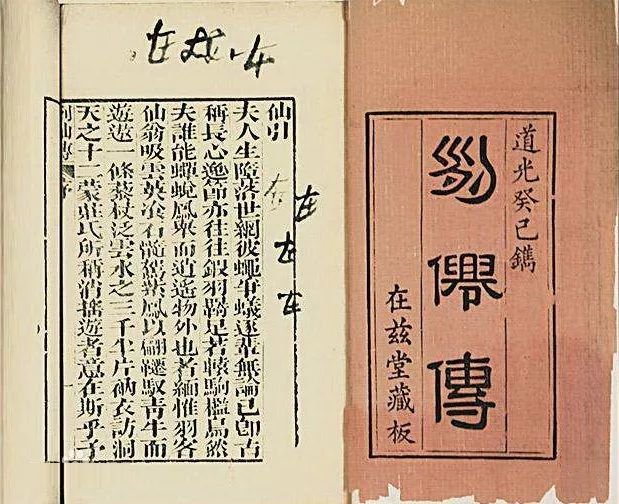 道光癸巳鐫
列僊傳
在茲堂藏板
仙引
夫人生墮落世網彼蠅爭蟻逐輩無論已卽古
稱長心逸節亦往往鎩羽羈足若轅駒檻鳥然
夫誰能蟬蛻鳳舉而逍遙物外也者緬惟羽客
仙翁吸雲英飡石髓駕紫鳳以翩躚馭青牛而
遊遨一條藜杖泛雲水之三千半片衲衣訪洞
天之十二蒙莊氏所稱消搖遊者意在斯乎予
列仙傳 序
在
在
在
在